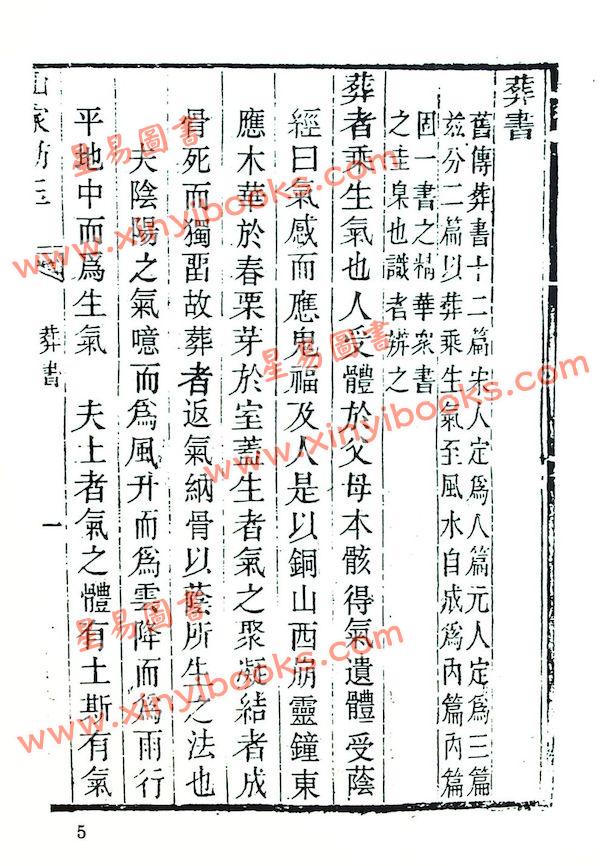 葬書
舊傳葬書十二篇宋人定爲八篇元人定爲三篇
兹分二篇以葬乘生氣至風水自成爲內篇內篇
固一書之精華衆書
之圭臬也識者辨之
葬者乘生氣也人受體於父母本骸得氣遺體受蔭
經曰氣感而應鬼福及人是以銅山西崩靈鐘東
應木華於春栗芽於室蓋生者氣之聚凝結者成
骨死而獨畱故葬者返氣納骨以蔭所生之法也
夫陰陽之氣噫而爲風升而爲雲降而爲雨行
平地中而爲生氣 夫土者氣之體有土斯有氣
葬書
一
5
星易圖書
www.xinyibooks.com
星易圖書
www.xinyibooks.com
星易圖書
www.xinyibooks.com